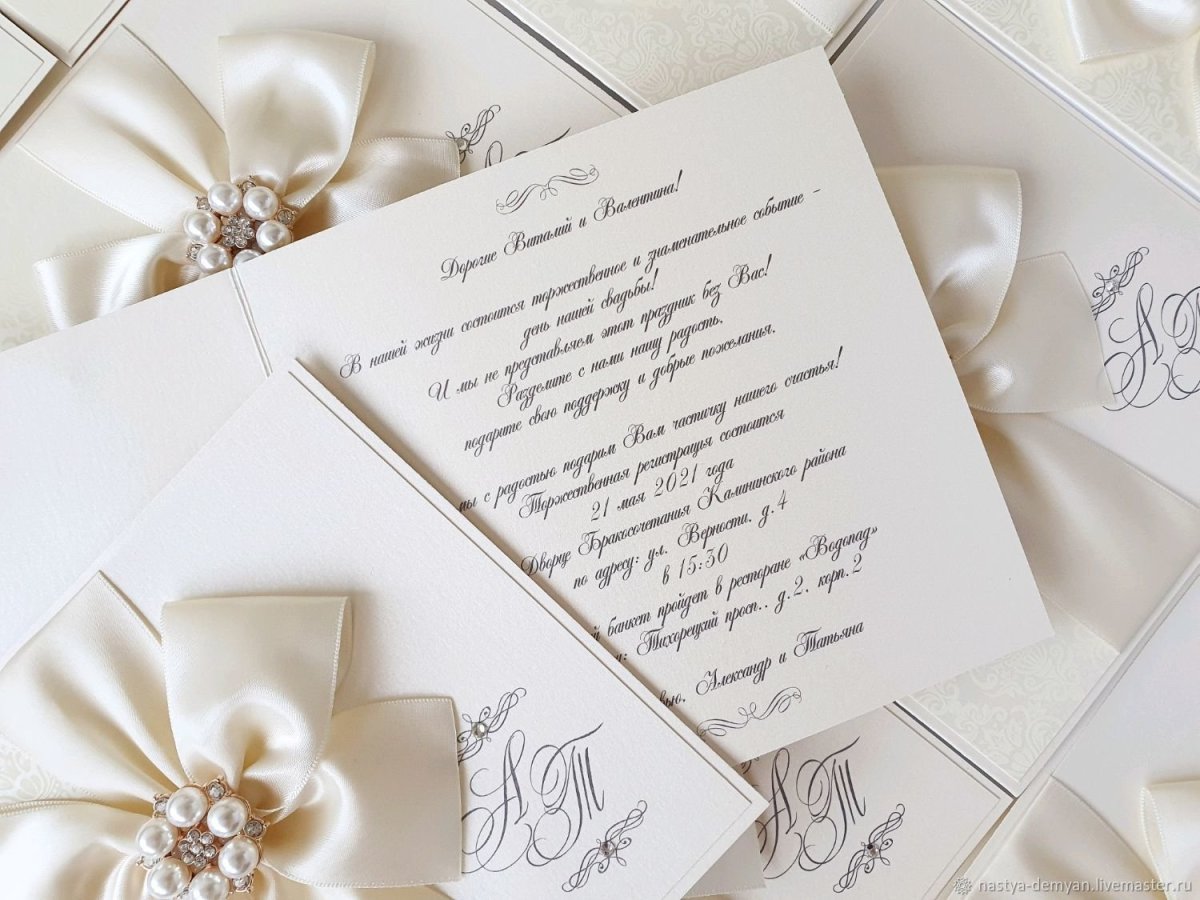 Дорогие Виталий и Валентина!
В нашей жизни состоится торжественное и знаменательное событие –
день нашей свадьбы!
И мы не представляем этот праздник без Вас!
Разделите с нами нашу радость,
подарите свою поддержку и добрые пожелания,
мы с радостью подарим Вам частичку нашего счастья!
Торжественная регистрация состоится
21 мая 2021 года
Дворце Бракосочетания Калининского района
по адресу: ул. Верности, д.4
в 15:30
банкет пройдет в ресторане «Водопад»
Тихорецкий просп., д.2, корп.2
Александр и Татьяна
АТ
АТ
АТ
nastya-demyan.livemaster.ru